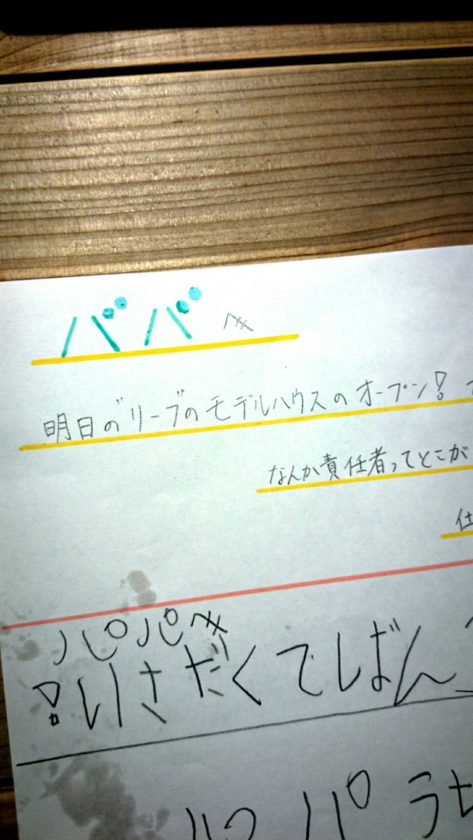 ババへ
明日の"リーブ"のモデルハウスのオープン!
なんか責任者ってとこが
仕
パパへ
!いさだくてしばん
パパ